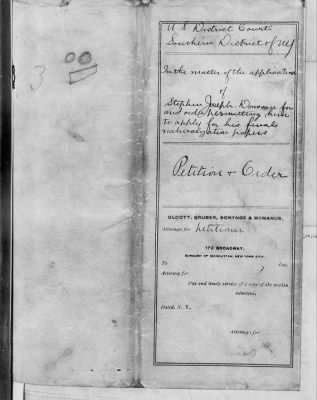 U. S. District Court
Southern District of NY
In the matter of the application
of
Stephen Joseph Donovan for
an order permitting him
to apply for his final
naturalization papers
Petition & Order
OLCOTT, GRUBER, BONYNGE & McMANUS,
Attorneys for petitioner
170 BROADWAY,
BOROUGH OF MANHATTAN, NEW YORK CITY.
To Esq.
Attorney for
Due and timely service of a copy of the within
admitted.
Dated, N. Y.,
Attorneys for
3
00